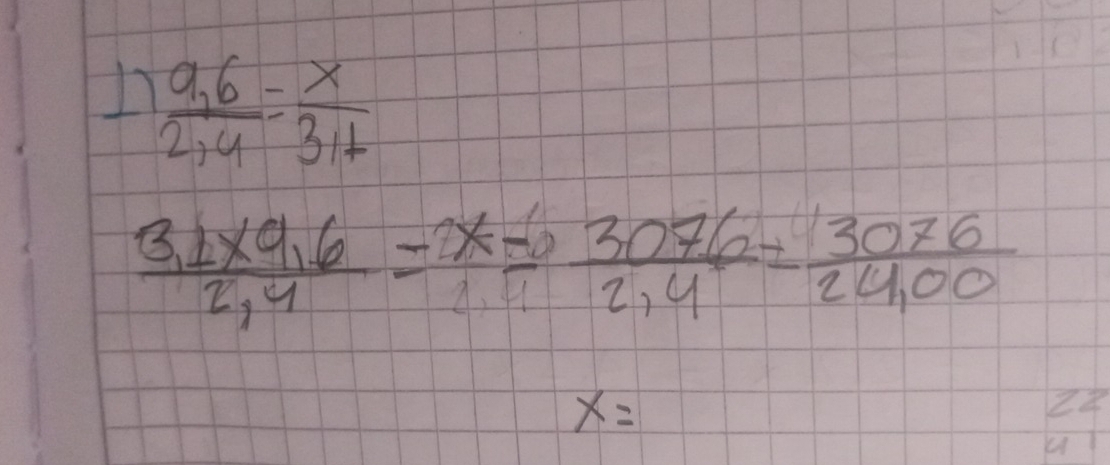 1) 9,6/2,4 = x/3,1
3,1x9,6/2,4 = x = 3076/2,4 = 3076/24,00
x=
22